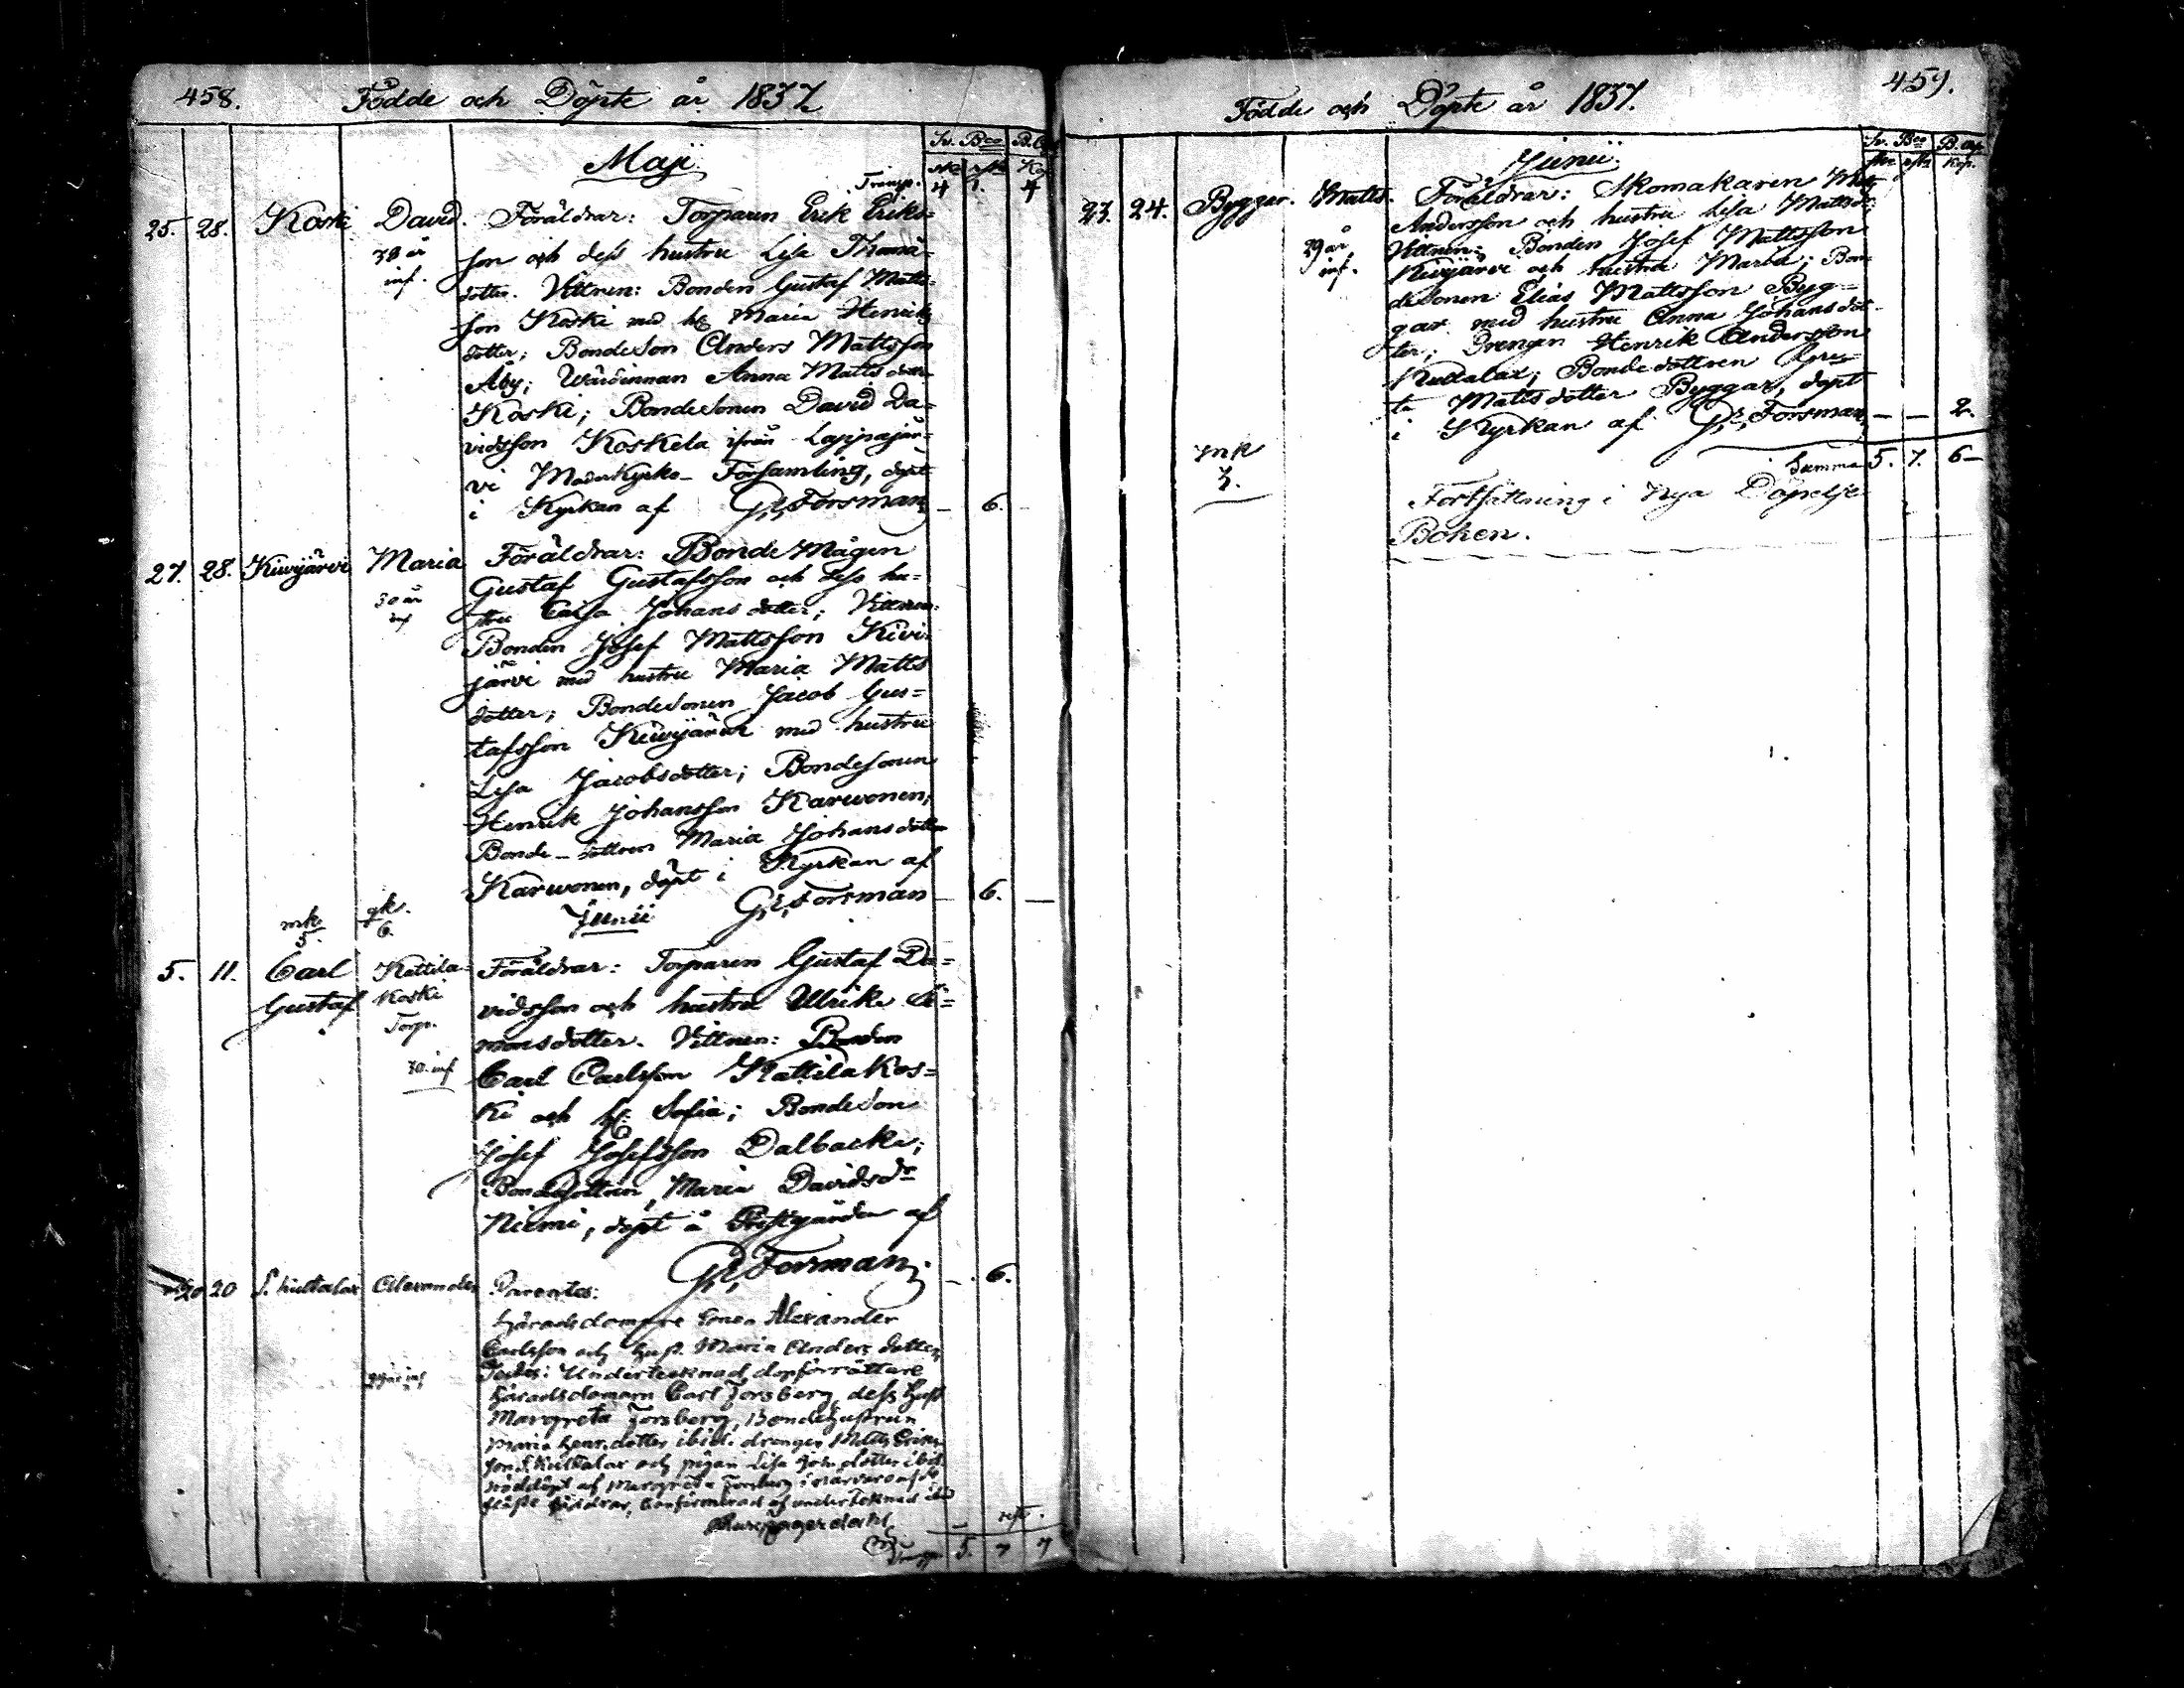 458. Födde och Döpte år 1837.
Sv. Bco B.
Maji.
Transp. 4 1. 4
25. 28. Koski David. Föräldrar: Torparen Erik Eriks=
38 år son och dess hustru Lisa Thomæ-
inf. dotter. Vittnen: Bonden Gustaf Matts-
son Koski med h. Maria Henriks
dotter; Bondeson Anders Mattsson
Åby; Wärdinnan Anna Mattsdotter
Koski; Bondesonen David Da=
vidsson Koskela ifrån Lappajär-
vi Moderkyrko-Församling, döpt
i Kyrkan af G. E. Forsman — 6.
27. 28. Kiwijärvi Maria Föräldrar: BondeMågen
Gustaf Gustafsson och dess hu=
30 år stru Caisa Johansdotter; Vittnen:
inf Bonden Josef Mattsson Kivi-
järvi med hustru Maria Matts
dotter; Bondesonen Jacob Gus=
tafsson Kiwijärvi med hustru
Lisa Jacobsdotter; Bondesonen
Henrik Johansson Karwonen;
Bonde-dottren Maria Johansdotter
Karwonen, döpt i Kyrkan af
G. E. Forsman — 6. —
mk. 5. qk. 6. Junii
5. 11. Carl Kattila- Föräldrar: Torparen Gustaf Da=
Gustaf Koski vidsson och hustru Ulrika Si=
Torp. monsdotter. Vittnen: Bonden
30. inf Carl Carlsson Kattilakos=
ki och h. Sofia; Bondeson
Josef Josefsson Dalbacka;
Bondedottren Maria Davidsdr
Niemi, döpt å Prestgården af
G. E. Forsman. — 6.
20 20 S. Kultalax Alexander Parentes:
Häradsdomare Sonen Alexander
Carlsson och hust. Maria Anders dotter,
Testes: Undertecknad dopförrättare
Häradsdomarn Carl Forsberg, dess hust
Margreta Forsberg, Bondehustrun
Maria Henr.dotter ibid. drengen Matts Eriks-
son S. Kultalax och pigan Lisa Joh.dotter ibid.
nöddöpt af Margreta Forsberg i närvaro af
föräldrar, Confirmerad af undertecknad
5. 7 7
459.
Födde och Döpte år 1837.
Sv. Bco B.
Kop.
Junii.
23. 24. Byggar. Matts. Föräldrar: Skomakaren Matts
Andersson och hustru Lisa Mattsdr
29 år Vittnen: Bonden Josef Mattsson
inf. Kiwijärvi och hustru Maria; Bon-
desonen Elias Mattsson Byg=
gar med hustru Anna Johansdot-
ter; Drengen Henrik Andersson
Kultalax; Bondedottren Gre=
ta Mattsdotter Byggar, döpt
i Kyrkan af G. E. Forsman — — 2.
mk Summa 5. 7. 6 —
3. Fortsättning i Nya Döpelse
Boken.